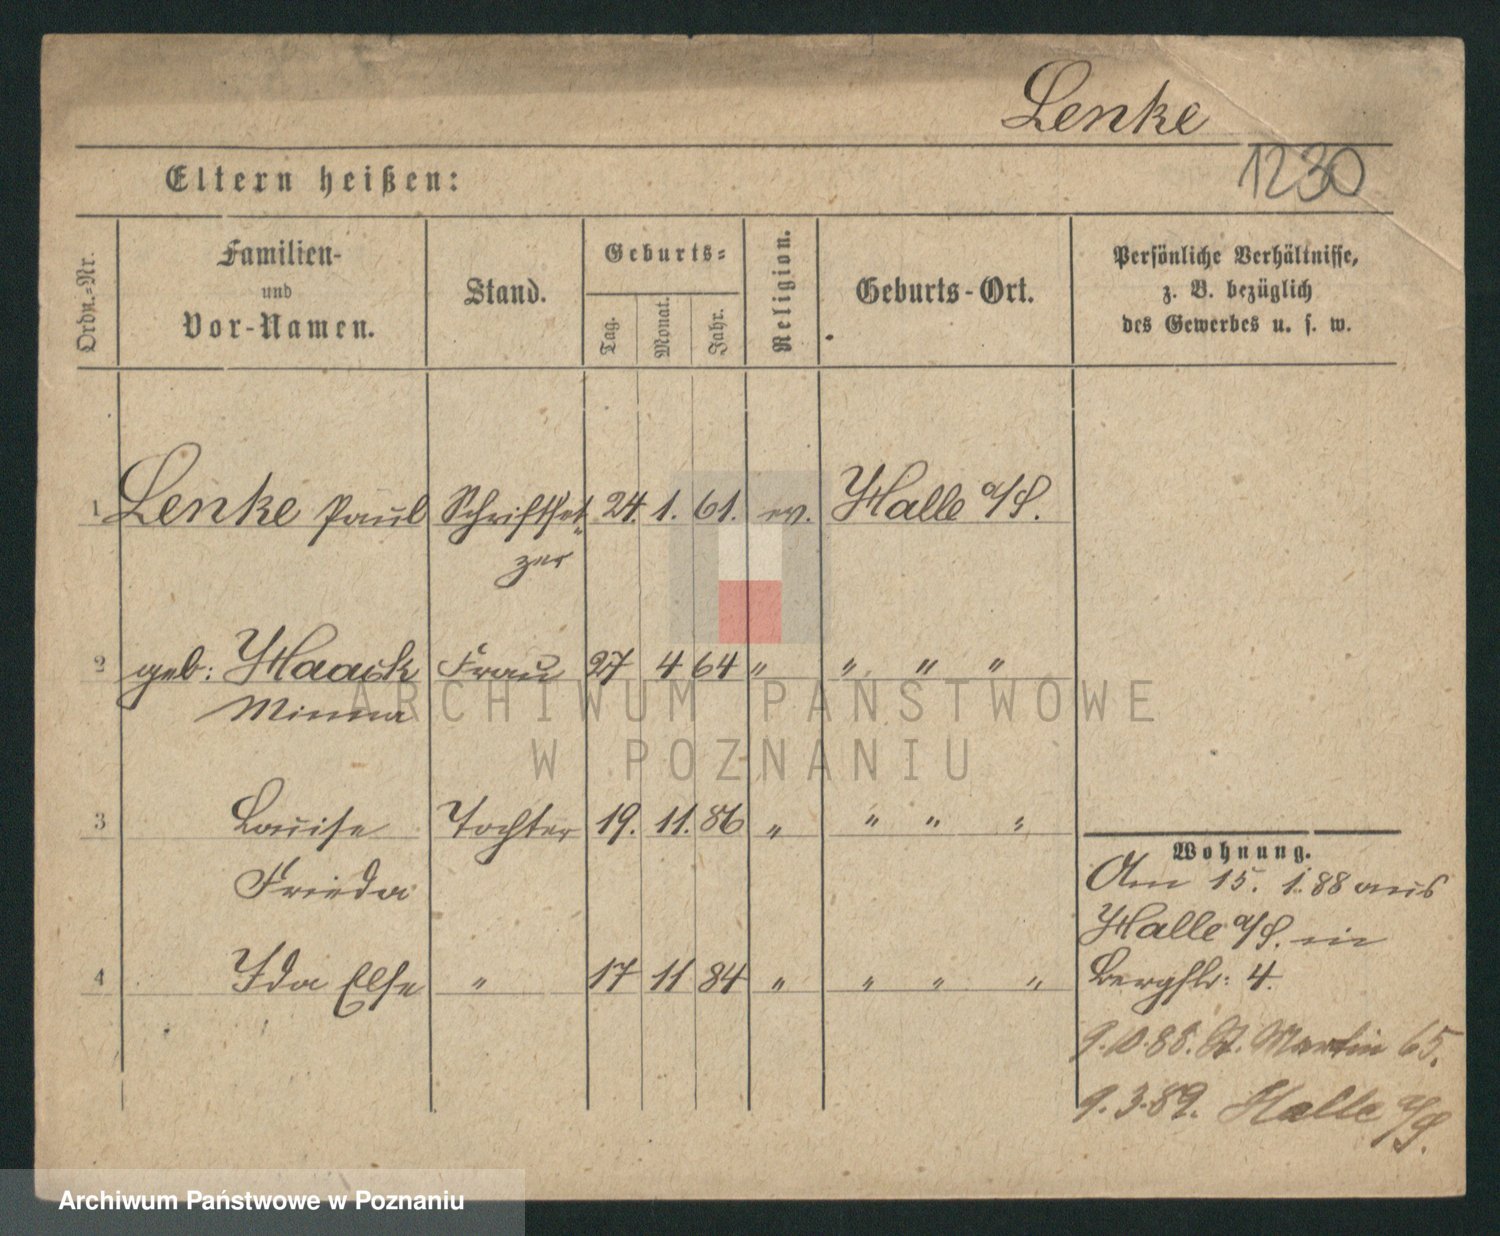 Lenke
1230
Eltern heißen:
Ordn.-Nr.
Familien-
und
Vor-Namen.
Stand.
Geburts-
Tag.
Monat.
Jahr.
Religion.
Geburts-Ort.
Persönliche Verhältnisse,
z. B. bezüglich
des Gewerbes u. s. w.
1 Lenke Paul Schriftset- 24. 1. 61. ev. Halle a/S.
zer
2 geb: Haack Frau 27 4 64 " " " "
Minna
ARCHIWUM PAŃSTWOWE
W POZNANIU
3 Louise Tochter 19. 11. 86 " " " "
Frieda
4 Ida Else " 17 11 84 " " " "
Wohnung.
Am 15. 1. 88 aus
Halle a/S. in
Bergstr: 4.
9.10.88. St. Martin 65.
9.3.89. Halle a/S.
Archiwum Państwowe w Poznaniu